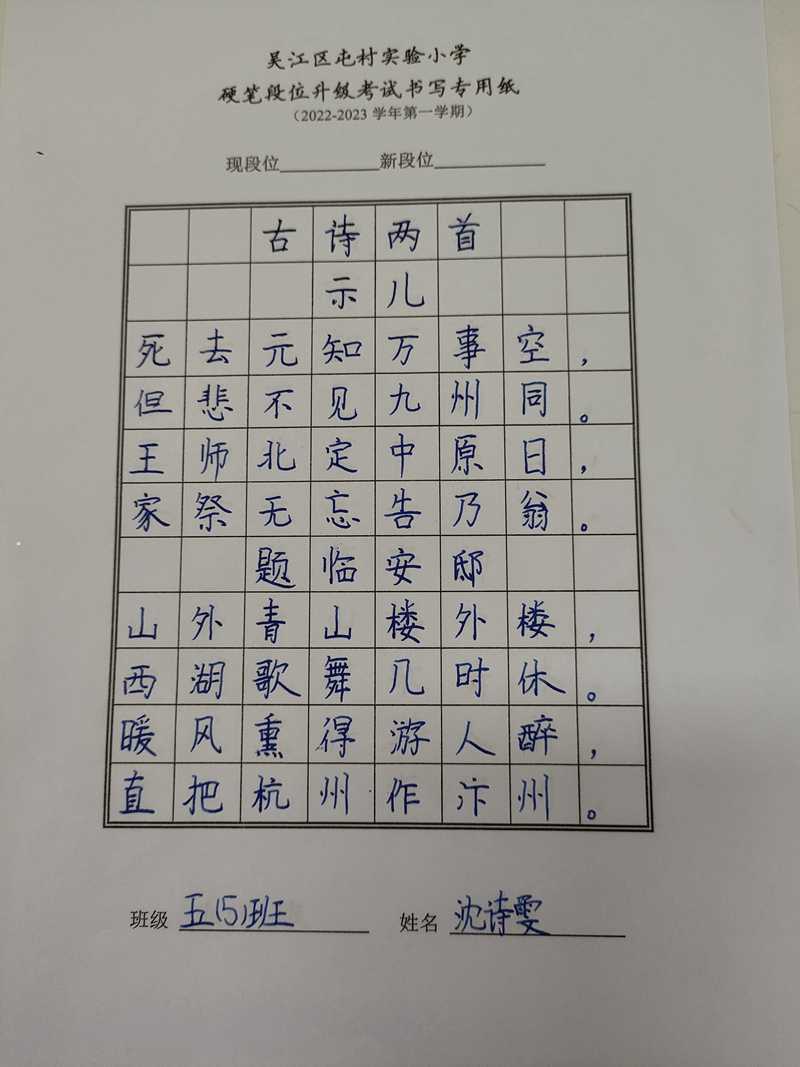 吴江区屯村实验小学
硬笔段位升级考试书写专用纸
（2022-2023 学年第一学期）
现段位__________新段位__________
古诗两首
示儿
死去元知万事空，
但悲不见九州同。
王师北定中原日，
家祭无忘告乃翁。
题临安邸
山外青山楼外楼，
西湖歌舞几时休。
暖风熏得游人醉，
直把杭州作汴州。
班级 五(5)班 姓名 沈诗雯